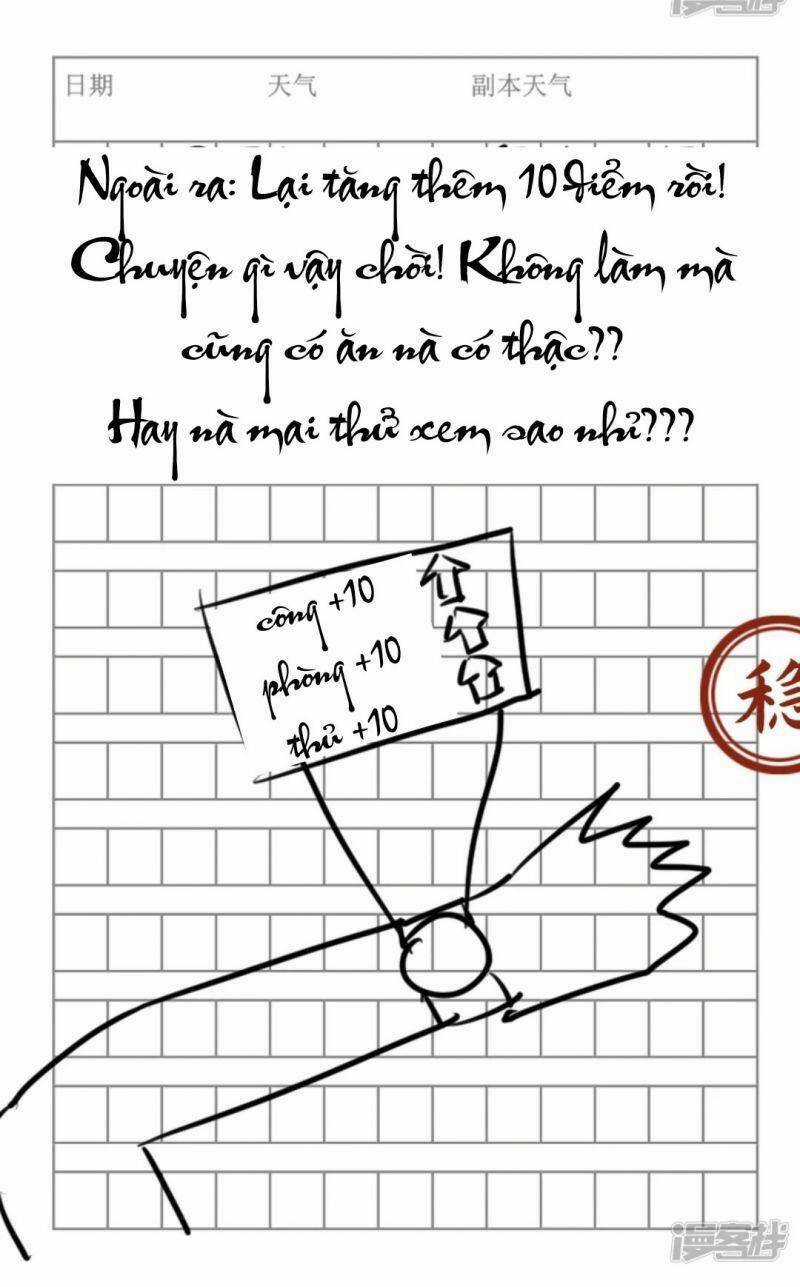 日期 天气 副本天气
Ngoài ra: Lại tăng thêm 10 điểm rồi!
Chuyện gì vậy chời! Không làm mà
cũng có ăn nà có thậc??
Hay nà mai thử xem sao nhỉ???
công +10
phòng +10
thủ +10
稳
漫客栈